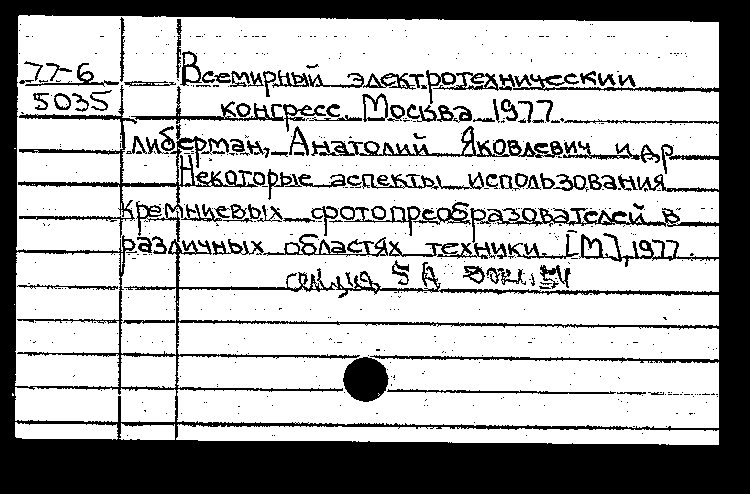 77-6 Всемирный электротехнический
5035 конгресс. Москва 1977.
Глиберман, Анатолий Яковлевич и др
Некоторые аспекты использования
кремниевых фотопреобразователей в
различных областях техники. [М.], 1977.
секция 5А докл. 54